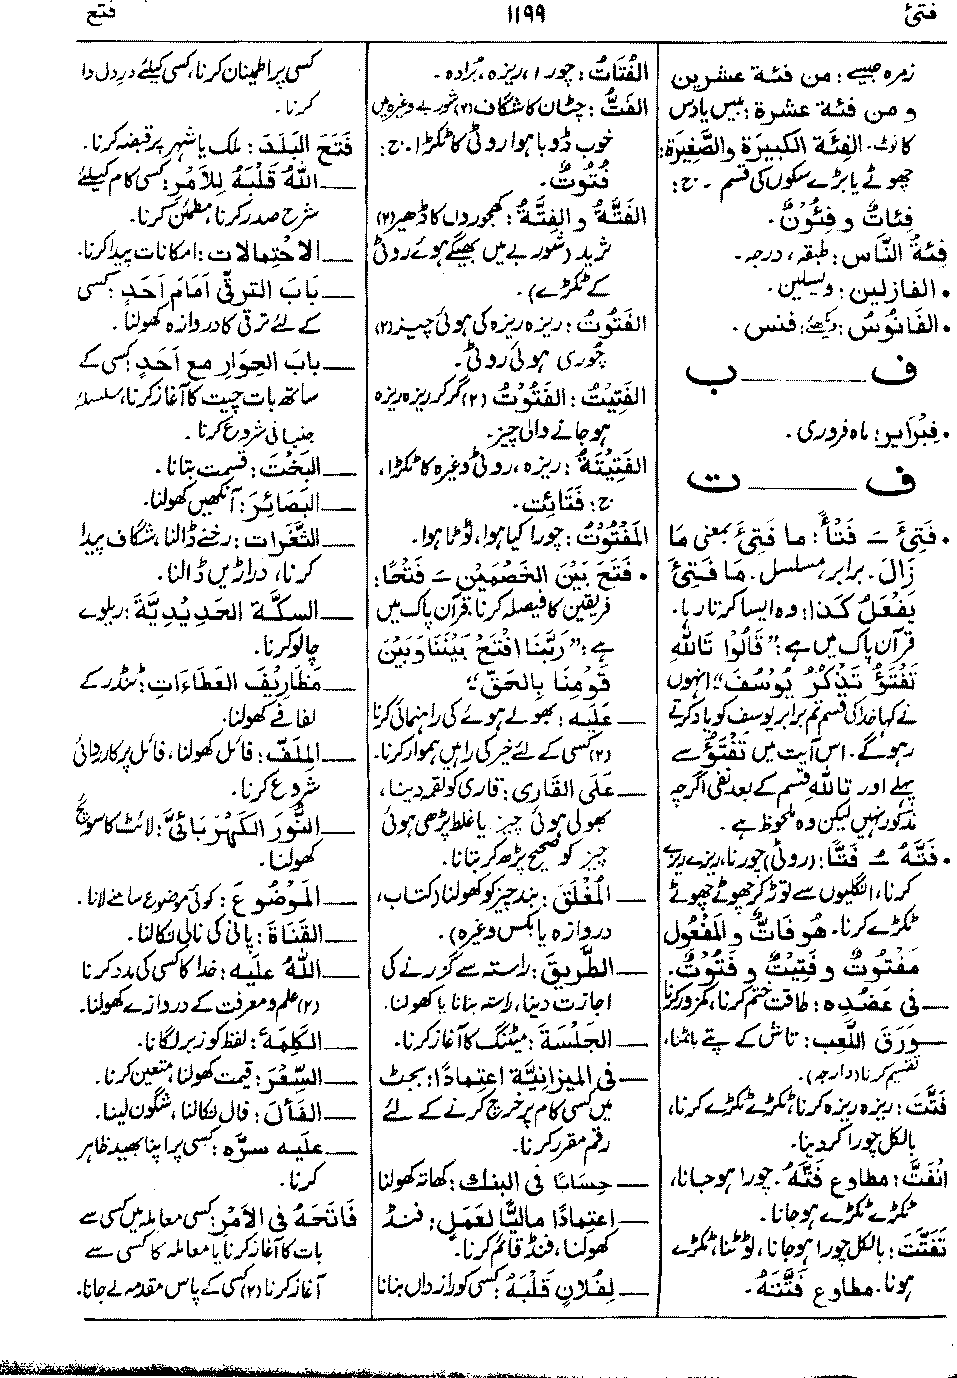 فتئ
۱۱۹۹
فتح
زمرہ جیسے: من فئة عشرین
و من فئة عشرة: بیس یا دس
کا نوٹ۔ الفِئَة الكبيرَة والصَّغِيرَة:
چھوٹے یا بڑے سکوں کی قسم ۔ ج:
فِئاتٌ و فِئُونَ۔
فِئَةُ النَّاس: طبقہ، درجہ۔
• الفازلین: ویسلین۔
• الفَانُوسُ: دیکھئے: فنس۔
ف ــــــ ب
• فِبْرَایر: ماہ فروری۔
ف ــــــ ت
• فَتِئَ ـَ فَتْأً: ما فَتِئَ بمعنی مَا
زَالَ۔ برابر، مسلسل۔ مَا فَتِئَ
يَفْعَلُ كَذَا: وہ ایسا کرتا رہا۔
قرآن پاک میں ہے: "قَالُوْا تَاللهِ
تَفْتَؤُ تَذْكُرُ يُوسُفَ" انہوں
نے کہا خدا کی قسم تم برابر یوسف کو یاد کرتے
رہو گے۔ اس آیت میں تَفْتَؤُ سے
پہلے اور تاللهِ قسم کے بعد نفی اگرچہ
مذکور نہیں لیکن وہ ملحوظ ہے۔
• فَتَّهُ ـُ فَتًّا: (روٹی) چورنا، ریزے ریزے
کرنا، انگلیوں سے توڑ کر چھوٹے چھوٹے
ٹکڑے کرنا۔ هُو فَاتٌّ و المَفْعُول
مَفْتُوتٌ و فَتِيْتٌ و فَتُوْتٌ۔
ــــ فی عَضُدِه: طاقت ختم کرنا، کمزور کرنا
ــــ وَرَقَ اللَّعِب: تاش کے پتے بانٹنا،
تقسیم کرنا (دارجہ)۔
فَتَّتَ: ریزہ ریزہ کرنا، ٹکڑے ٹکڑے کرنا،
بالکل چورا کر دینا۔
انْفَتَّ: مطاوع فَتَّهُ۔ چورا ہو جانا،
ٹکڑے ٹکڑے ہو جانا۔
تَفَتَّتَ: بالکل چورا ہو جانا، ٹوٹنا، ٹکڑے
ہونا۔ مطاوع فَتَّتَهُ۔
الفُتَاتُ: چورا، ریزہ، برادہ۔
الفَتُّ: چٹان کا شگاف (۲) شوربے وغیرہ میں
خوب ڈوبا ہوا روٹی کا ٹکڑا۔ ج:
فُتُوتٌ۔
الفَتَّةُ و الفِتَّةُ: کھجوروں کا ڈھیر (۲)
ثرید (شوربے میں بھیگے ہوئے روٹی
کے ٹکڑے)۔
الفَتُوتُ: ریزہ ریزہ کی ہوئی چیز (۲)
چوری ہوئی روٹی۔
الفَتِيْتُ: الفَتُوْتُ (۲) گر کر ریزہ ریزہ
ہو جانے والی چیز۔
الفَتِيْتَةُ: ریزہ، روٹی وغیرہ کا ٹکڑا،
ج: فَتَائِت۔
المَفْتُوْتُ: چورا کیا ہوا، ٹوٹا ہوا۔
• فَتَحَ بَيْنَ الخَصْمَيْنِ ـَ فَتْحًا:
فریقین کا فیصلہ کرنا، قرآن پاک میں
ہے: "رَبَّنَا افْتَحْ بَيْنَنَا وَبَيْنَ
قَوْمِنَا بِالحَقِّ"
ــــ عَلَيه: بھولے ہوئے کی راہنمائی کرنا
(۲) کسی کے لئے خیر کی راہیں ہموار کرنا۔
ــــ عَلَى القَارِي: قاری کو لقمہ دینا،
بھولی ہوئی چیز یا غلط پڑھی ہوئی
چیز کو صحیح پڑھ کر بتانا۔
ــــ المُغْلَقَ: بند چیز کو کھولنا (کتاب،
دروازہ یا بکس وغیرہ)۔
ــــ الطَّرِيقَ: راستہ سے گزرنے کی
اجازت دینا، راستہ بنانا یا کھولنا۔
ــــ الجَلْسَةَ: میٹنگ کا آغاز کرنا۔
ــــ فى الميزَانِيَّة اعتِمادًا: بجٹ
میں کسی کام پر خرچ کرنے کے لئے
رقم مقرر کرنا۔
ــــ حِسَابًا فى البنك: کھاتہ کھولنا
ــــ اعتِمادًا ماليًّا لعَمَلٍ: فنڈ
کھولنا، فنڈ قائم کرنا۔
ــــ لِفُلَانٍ قَلْبَهُ: کسی کو راز داں بنانا
کسی پر اطمینان کرنا، کسی کیلئے در دل وا
کرنا۔
فَتَحَ البَلَدَ: ملک یا شہر پر قبضہ کرنا۔
ــــ اللهُ قَلْبَهُ لِلأمْرِ: کسی کام کیلئے
شرح صدر کرنا، مطمئن کرنا۔
ــــ الاحْتِمالات: امکانات پیدا کرنا۔
ــــ بَابَ الترقّي أمَامَ أحَدٍ: کسی
کے لئے ترقی کا دروازہ کھولنا۔
ــــ بابَ الحِوَارِ مع أحَدٍ: کسی کے
ساتھ بات چیت کا آغاز کرنا، سلسلہ
جنبانی شروع کرنا۔
ــــ البَخْتَ: قسمت بتانا۔
ــــ البَصَائِرَ: آنکھیں کھولنا۔
ــــ الثُّغَرات: رخنے ڈالنا، شگاف پیدا
کرنا، دراڑیں ڈالنا۔
ــــ السِكَّة الحَدِيْدِيَّةَ: ریلوے
چالو کرنا۔
ــــ مَظَارِيفَ العَطَاءَاتِ: ٹنڈر کے
لفافے کھولنا۔
ــــ المِلَفَّ: فائل کھولنا، فائل پر کاروائی
شروع کرنا۔
ــــ النُّورَ الكَهْرُبَائِيَّ: لائٹ کا سوئچ
کھولنا۔
ــــ المَوْضُوعَ: کوئی موضوع سامنے لانا۔
ــــ القَنَاةَ: پانی کی نالی نکالنا۔
ــــ اللهُ عليه: خدا کا کسی کی مدد کرنا
(۲) علم و معرفت کے دروازے کھولنا۔
ــــ الكَلِمَةَ: لفظ کو زبر لگانا۔
ــــ السِّعْرَ: قیمت کھولنا، متعین کرنا۔
ــــ الفَألَ: فال نکالنا، شگون لینا۔
ــــ عليه سرَّه: کسی پر اپنا بھید ظاہر
کرنا۔
فَاتَحَهُ فِي الأمْرِ: کسی معاملہ میں کسی سے
بات کا آغاز کرنا یا معاملہ کا کسی سے
آغاز کرنا (۲) کسی کے پاس مقدمہ لے جانا۔